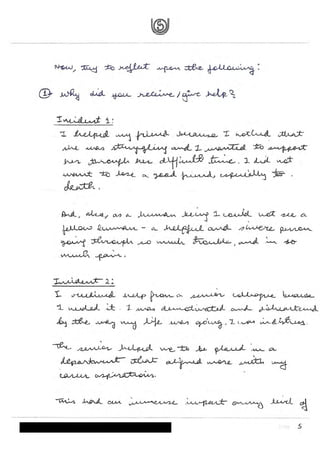 Now, try to reflect upon the following:
1 Why did you receive / give help?
Incident 1:
I helped my friend because I noticed that
she was struggling and I wanted to support
her through her difficult time. I did not
want to lose a good friend, especially to
death.
And, also, as a human being I could not see a
fellow human - a helpful and sincere person
going through so much trouble, and in so
much pain.
Incident 2:
I received help from a senior colleague because
I needed it. I was demotivated and disheartened
by the way my life was going. I was in distress.
The senior helped me to be placed in a
department that aligned more with my
career aspirations.
This had an immense impact on my level of
5